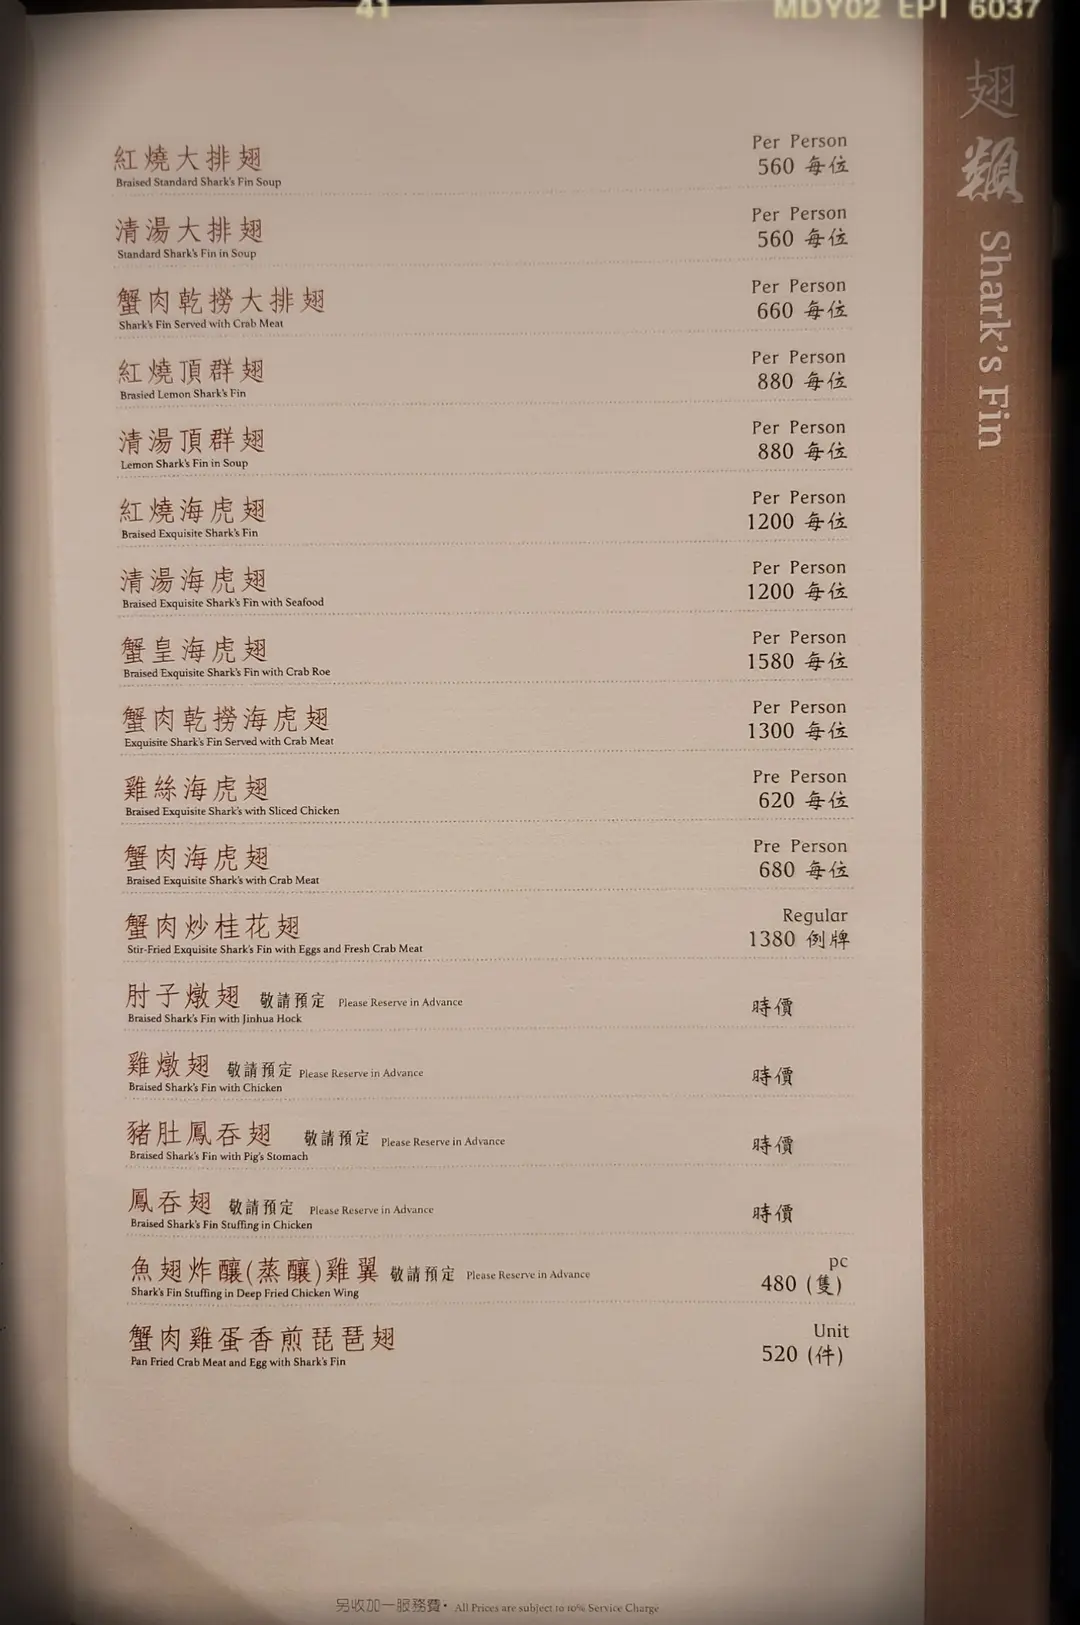 41
MDY02 EPI 6037
翅類 Shark's Fin
紅燒大排翅
Braised Standard Shark's Fin Soup
Per Person
560 每位
清湯大排翅
Standard Shark's Fin in Soup
Per Person
560 每位
蟹肉乾撈大排翅
Shark's Fin Served with Crab Meat
Per Person
660 每位
紅燒頂群翅
Brasied Lemon Shark's Fin
Per Person
880 每位
清湯頂群翅
Lemon Shark's Fin in Soup
Per Person
880 每位
紅燒海虎翅
Braised Exquisite Shark's Fin
Per Person
1200 每位
清湯海虎翅
Braised Exquisite Shark's Fin with Seafood
Per Person
1200 每位
蟹皇海虎翅
Braised Exquisite Shark's Fin with Crab Roe
Per Person
1580 每位
蟹肉乾撈海虎翅
Exquisite Shark's Fin Served with Crab Meat
Per Person
1300 每位
雞絲海虎翅
Braised Exquisite Shark's with Sliced Chicken
Pre Person
620 每位
蟹肉海虎翅
Braised Exquisite Shark's with Crab Meat
Pre Person
680 每位
蟹肉炒桂花翅
Stir-Fried Exquisite Shark's Fin with Eggs and Fresh Crab Meat
Regular
1380 例牌
肘子燉翅 敬請預定 Please Reserve in Advance
Braised Shark's Fin with Jinhua Hock
時價
雞燉翅 敬請預定 Please Reserve in Advance
Braised Shark's Fin with Chicken
時價
豬肚鳳吞翅 敬請預定 Please Reserve in Advance
Braised Shark's Fin with Pig's Stomach
時價
鳳吞翅 敬請預定 Please Reserve in Advance
Braised Shark's Fin Stuffing in Chicken
時價
魚翅炸釀(蒸釀)雞翼 敬請預定 Please Reserve in Advance
Shark's Fin Stuffing in Deep Fried Chicken Wing
pc
480 (隻)
蟹肉雞蛋香煎琵琶翅
Pan Fried Crab Meat and Egg with Shark's Fin
Unit
520 (件)
另收加一服務費• All Prices are subject to 10% Service Charge